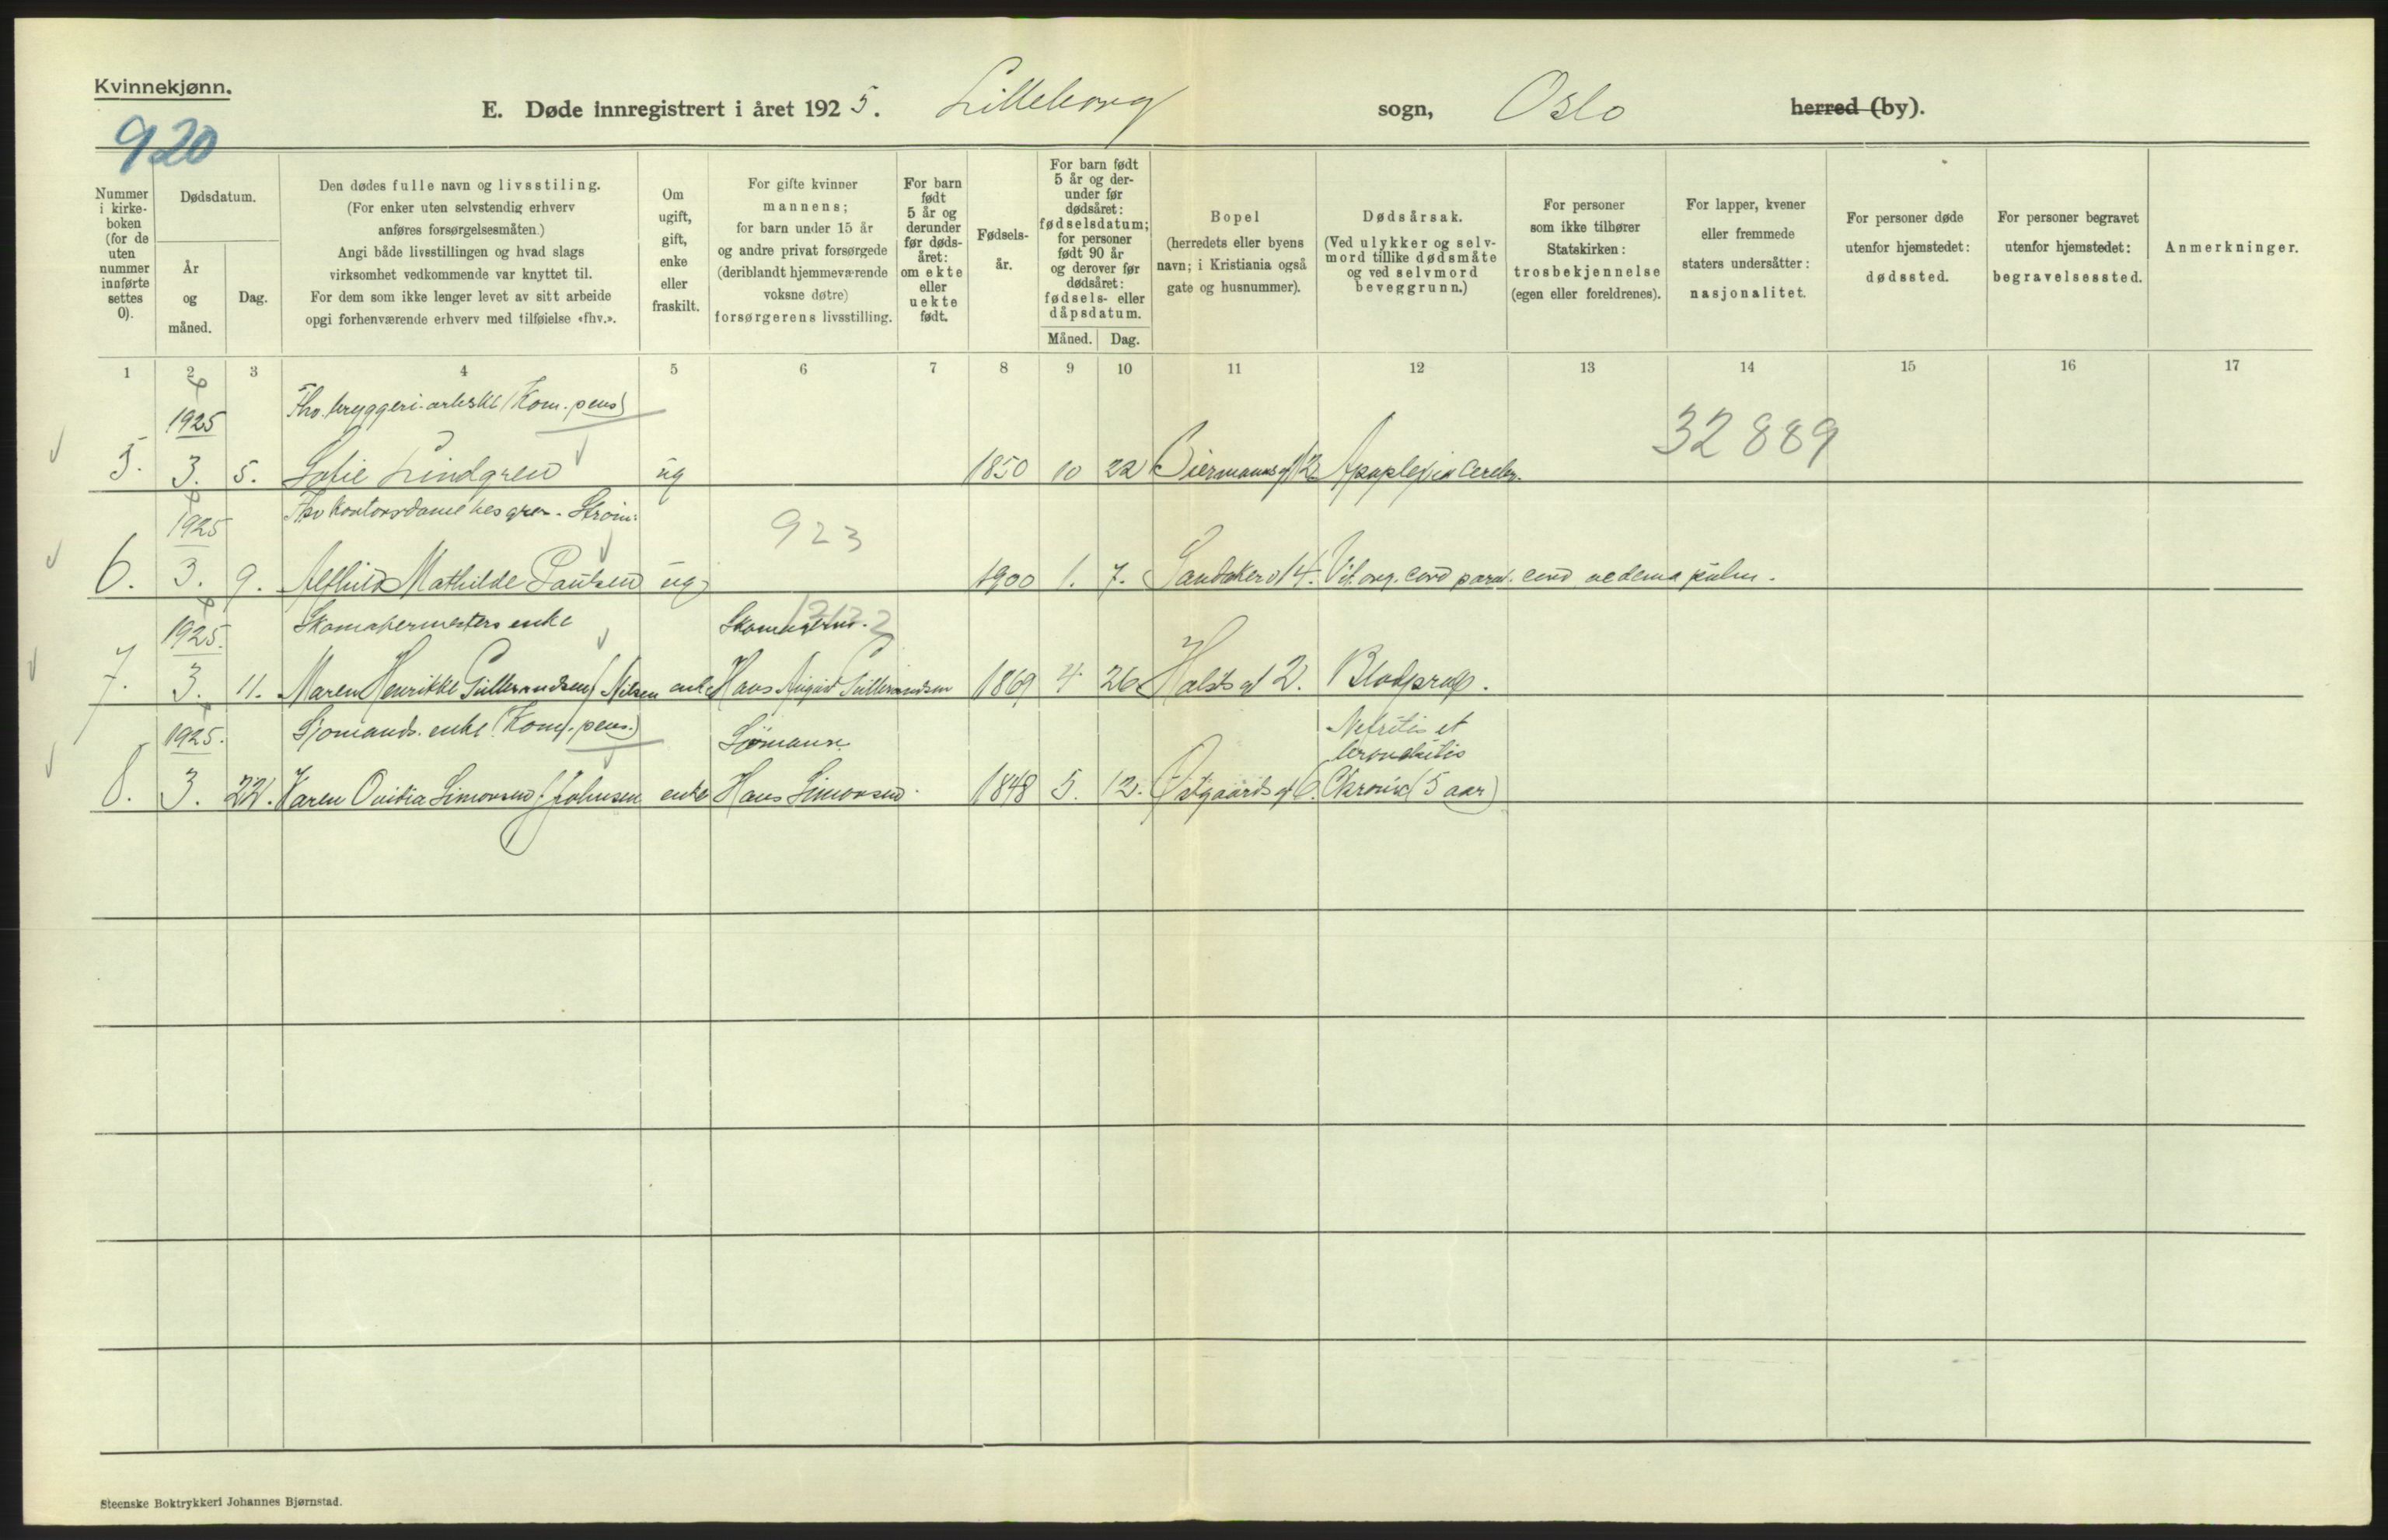 Kvinnekjønn.
920
E. Døde innregistrert i året 1925. Lilleborg sogn, Oslo herred (by).
Nummer i kirke-boken (for de uten nummer innførte settes 0).
Dødsdatum.
År og måned.
Dag.
Den dødes fulle navn og livsstiling.
(For enker uten selvstendig erhverv
anføres forsørgelsesmåten.)
Angi både livsstillingen og hvad slags
virksomhet vedkommende var knyttet til.
For dem som ikke lenger levet av sitt arbeide
opgi forhenværende erhverv med tilføielse «fhv.».
Om
ugift,
gift,
enke
eller
fraskilt.
For gifte kvinner
mannens;
for barn under 15 år
og andre privat forsørgede
(deriblandt hjemmeværende
voksne døtre)
forsørgerens livsstilling.
For barn
født
5 år og
derunder
før døds-
året:
om ekte
eller
uekte
født.
Fødsels-
år.
For barn født
5 år og der-
under før
dødsåret:
fødselsdatum;
for personer
født 90 år
og derover før
dødsåret:
fødsels- eller
dåpsdatum.
Måned. Dag.
Bopel
(herredets eller byens
navn; i Kristiania også
gate og husnummer).
Dødsårsak.
(Ved ulykker og selv-
mord tillike dødsmåte
og ved selvmord
beveggrunn.)
For personer
som ikke tilhører
Statskirken:
trosbekjennelse
(egen eller foreldrenes).
For lapper, kvener
eller fremmede
staters undersåtter:
nasjonalitet.
For personer døde
utenfor hjemstedet:
dødssted.
For personer begravet
utenfor hjemstedet:
begravelsessted.
Anmerkninger.
1 2 3 4 5 6 7 8 9 10 11 12 13 14 15 16 17
1925 Fhv. bryggeri-arbeske (Kom. pens)
32 889
5. 3. 5. Sofie Lindgren ug 1850 10 22 Biermanns g 12 Apoplexia cerebr.
1925 Fhv Kontordame hos
923
6. 3. 9. Alfhild Mathilde Paulsen ug 1900 1. 7. Sandakerv 14. Vit. org. cord paral. cord oedema pulm.
1925. Skomakermesters enke
7. 3. 11. Maren Henrikke Gulbrandsen f. Nilsen enke Hans August Gulbrandsen 1869 4 26 Holsts g 2. Blodprop.
1925. Sjømands. enke (Kom. pens.) Sjømann Nefritis et
bronchitis
8. 3. 22. Karen Ovidia Simonsen f. Johnsen enke Hans Simonsen 1848 5. 12. Østgaards g 6. Chronic (5 aar)
Steenske Boktrykkeri Johannes Bjørnstad.